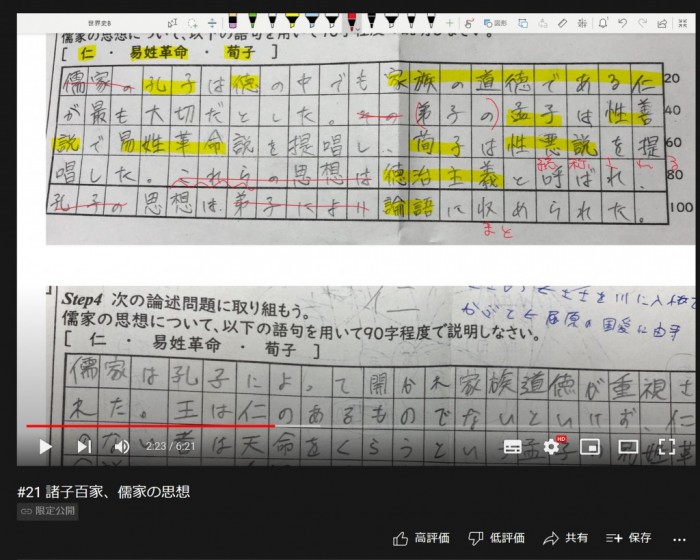 世界史B
儒家の思想について、以下の語句を用いて90字程度で説明しなさい。
[ 仁 ・ 易姓革命 ・ 荀子 ]
儒家の孔子は徳の中でも家族の道徳である仁 20
が最も大切だとした。その(弟子の)孟子は性善 40
説で易姓革命説を提唱し、荀子は性悪説を提 60
唱した。これらの思想は徳治主義と呼ばれ、 80
孔子の思想は弟子により論語に収められた。 100
まと
Step4 次の論述問題に取り組もう。
儒家の思想について、以下の語句を用いて90字程度で説明しなさい。
[ 仁 ・ 易姓革命 ・ 荀子 ]
儒家は孔子によって開かれ家族道徳が重視さ
れた。王は仁のあるものでないといけず、仁
のない者は天命をくらうという孟子の易姓革
2:23 / 6:21
HD
#21 諸子百家、儒家の思想
限定公開
高評価 低評価 共有 保存